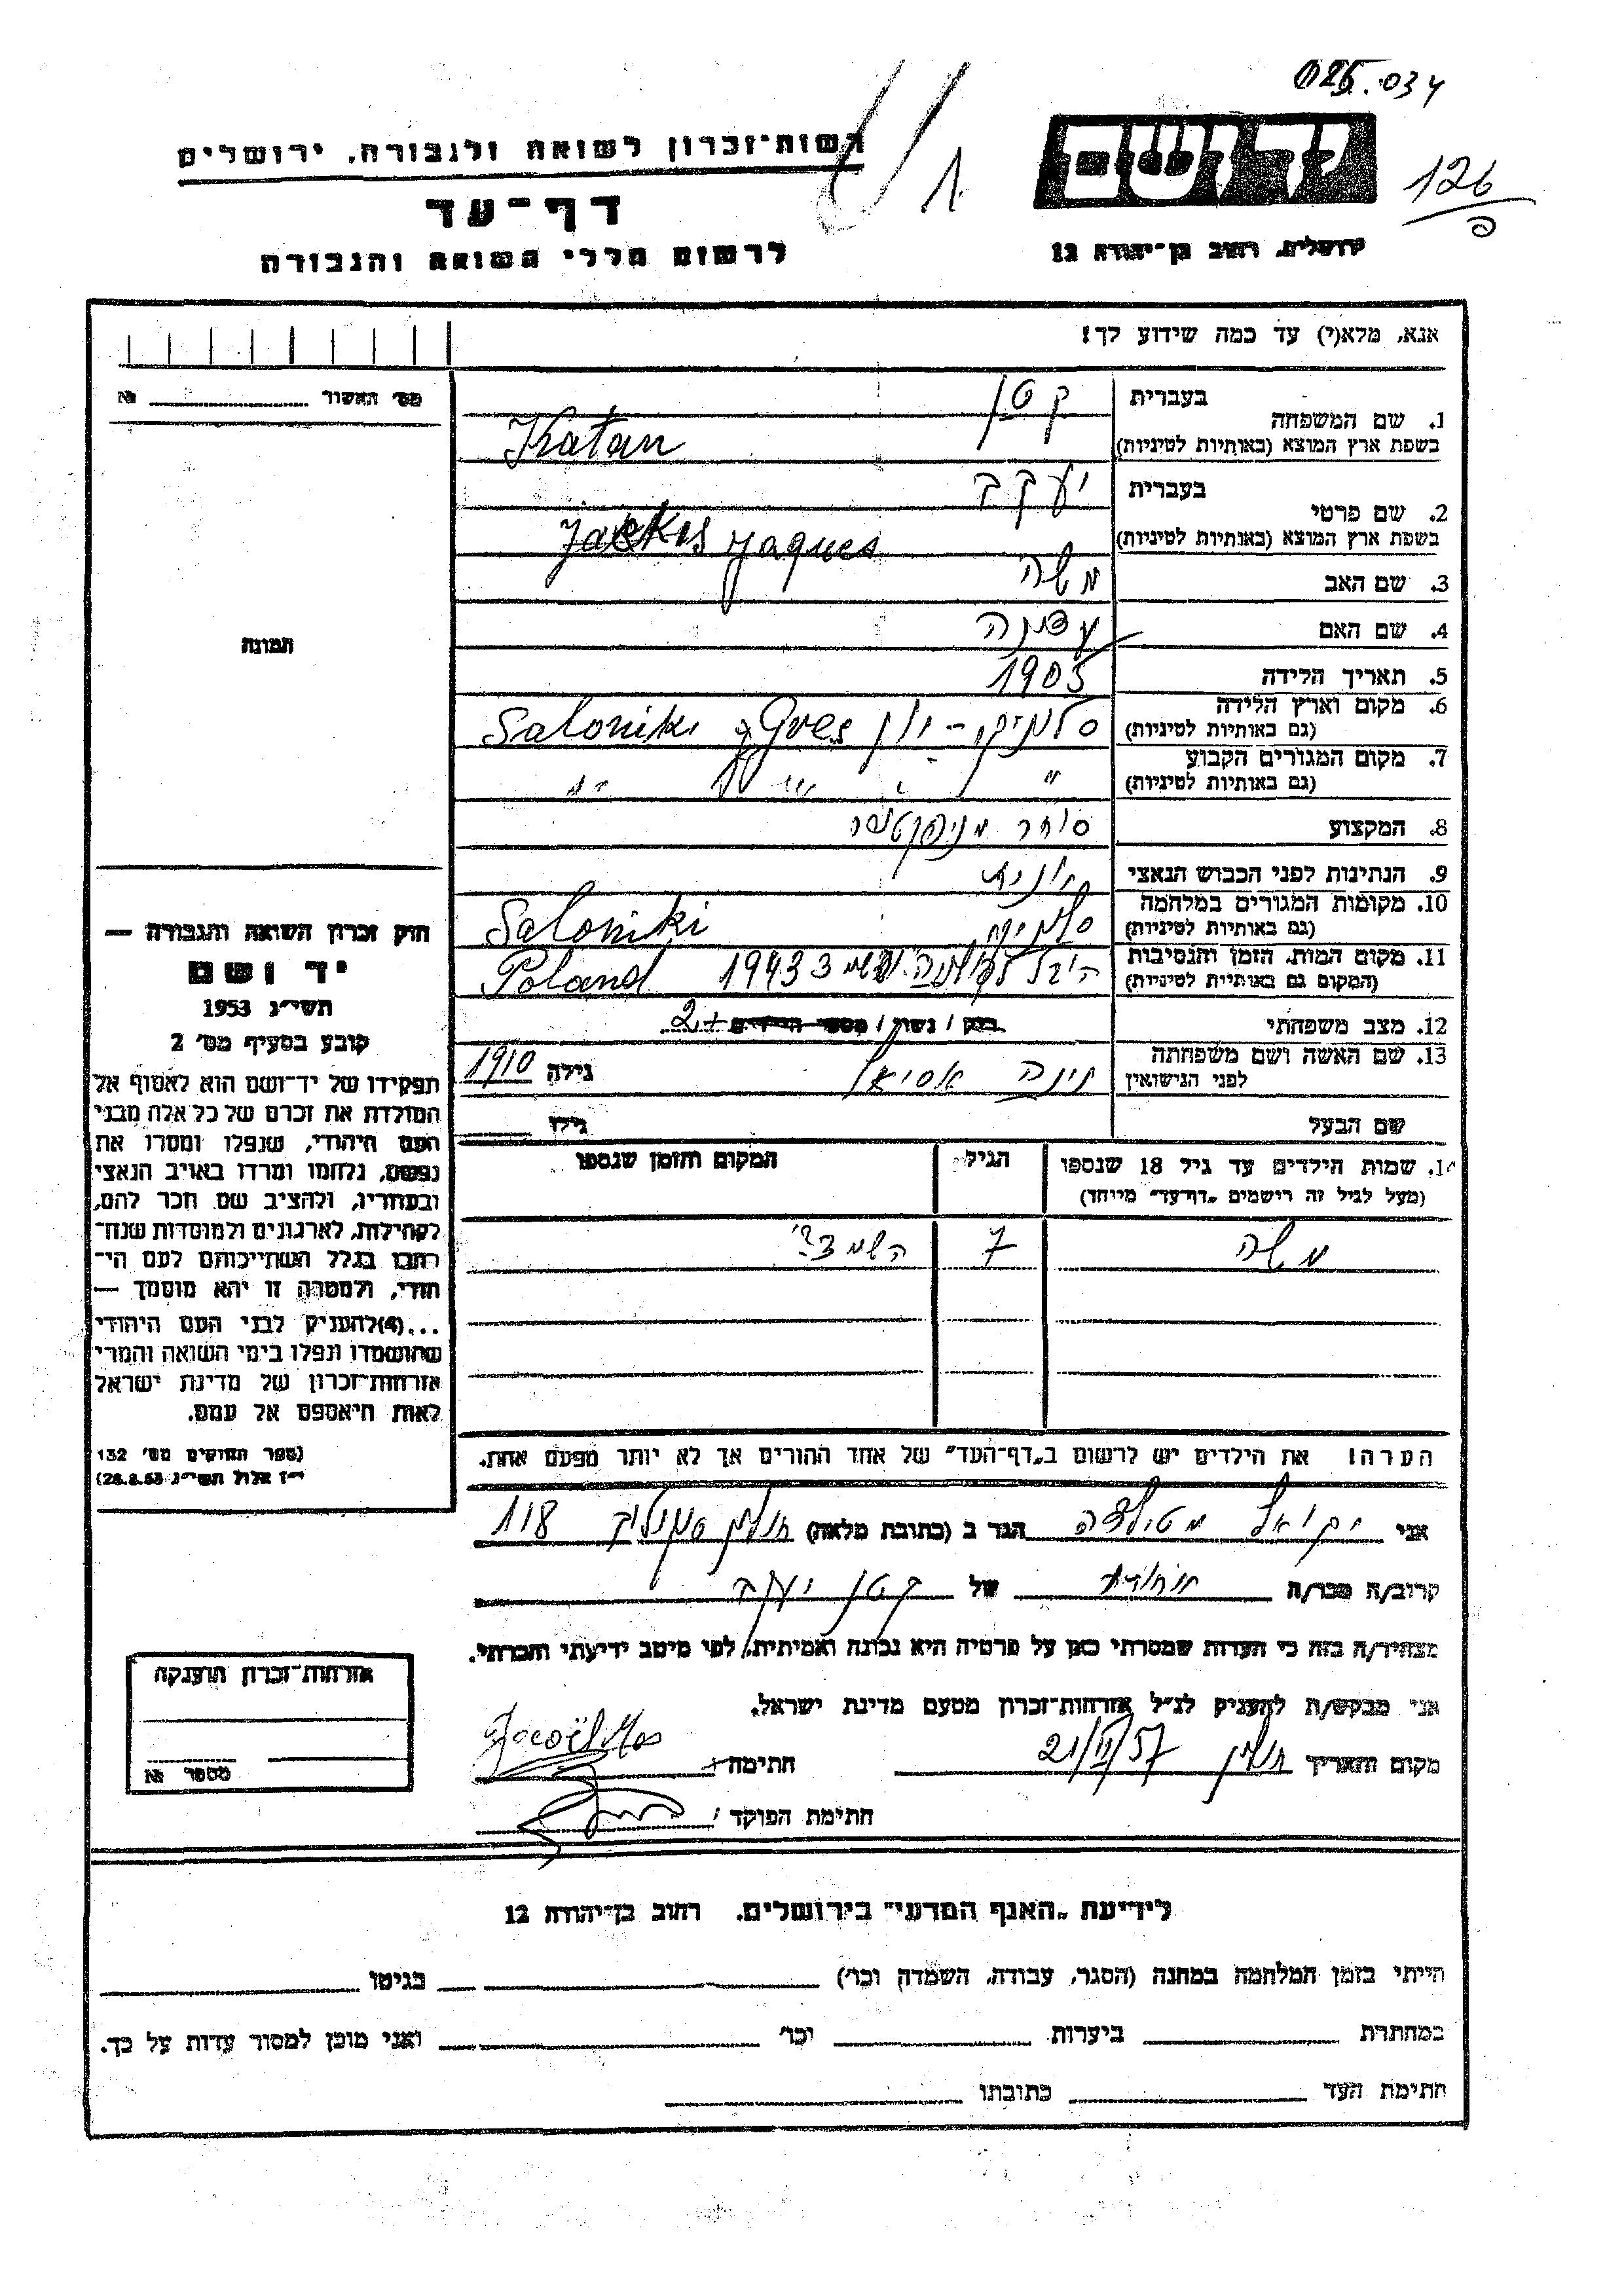 025.034
רשות־זכרון לשואה ולגבורה, ירושלים
יד ושם
1
126
דף־עד
לרשום חללי השואה והגבורה
ירושלים, רחוב בן־יהודה 12
אנא, מלא(י) עד כמה שידוע לך!
מס׳ האשור № 
1. שם המשפחה
בעברית קטן
בשפת ארץ המוצא (באותיות לטיניות) Katan
2. שם פרטי
בעברית יעקב
בשפת ארץ המוצא (באותיות לטיניות) Jaques
3. שם האב משה
4. שם האם
5. תאריך הלידה 1905
6. מקום וארץ הלידה סלוניקי - יון Saloniki
(גם באותיות לטיניות)
7. מקום המגורים הקבוע " "
(גם באותיות לטיניות)
8. המקצוע סוחר
9. הנתינות לפני הכבוש הנאצי יונית
10. מקומות המגורים במלחמה Saloniki
(גם באותיות לטיניות)
11. מקום המות, הזמן והנסיבות 1943 Poland
(המקום גם באותיות לטיניות)
12. מצב משפחתי רווק / נשוי / מספר הילדים + 2
13. שם האשה ושם משפחתה לפני הנישואין גילה 1910
שם הבעל גילו
תמונה
14. שמות הילדים עד גיל 18 שנספו
(מעל לגיל זה רישמים „דף־עד" מייחד)
הגיל
המקום והזמן שנספו
משה 7
הערה! את הילדים יש לרשום ב„דף־העד" של אחד ההורים אך לא יותר מפעם אחת.
חוק זכרון השואה והגבורה —
יד ושם
תשי״ג 1953
קובע בסעיף מס׳ 2
תפקידו של יד־ושם הוא לאסוף אל
המולדת את זכרם של כל אלה מבני
העם היהודי, שנפלו ומסרו את
נפשם, נלחמו ומרדו באויב הנאצי
ובעוזריו, ולהציב שם וזכר להם,
לקהילות, לארגונים ולמוסדות שנח־
רבו בגלל השתייכותם לעם הי־
הודי, ולמטרה זו יהא מוסמך —
...(4)להעניק לבני העם היהודי
שהושמדו ונפלו בימי השואה והמרי
אזרחות־זכרון של מדינת ישראל
לאות היאספם אל עמם.
(ספר החוקים מס׳ 132
י״ז אלול תשי״ג 28.8.53)
אני מטילדה הגר ב (כתובת מלאה) חולון 118
קרוב/ה מכר/ה של קטן יעקב
מצהיר/ה בזה כי העדות שמסרתי כאן על פרטיה היא נכונה ואמיתית, לפי מיטב ידיעתי והכרתי.
אני מבקש/ת להעניק לנ״ל אזרחות־זכרון מטעם מדינת ישראל.
מקום ותאריך חולון 21/VI/57 חתימה
חתימת הפוקד
אזרחות־זכרון הוענקה
מספר №
לידיעת „האגף המדעי" בירושלים, רחוב בן־יהודה 12
הייתי בזמן המלחמה במחנה (הסגר, עבודה, השמדה וכו׳) בגיטו
במחתרת ביערות וכו׳ ואני מוכן למסור עדות על כך.
חתימת העד כתובתו